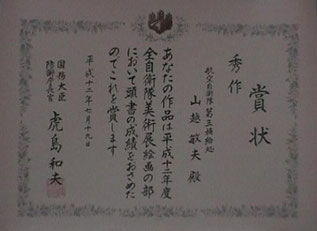 賞状
秀作
航空自衛隊第三補給処
山越敏夫殿
あなたの作品は平成十二年度
全自衛隊美術展絵画の部
において頭書の成績をおさめた
のでこれを賞します
平成十二年七月十九日
国務大臣
防衛庁長官
虎島和夫